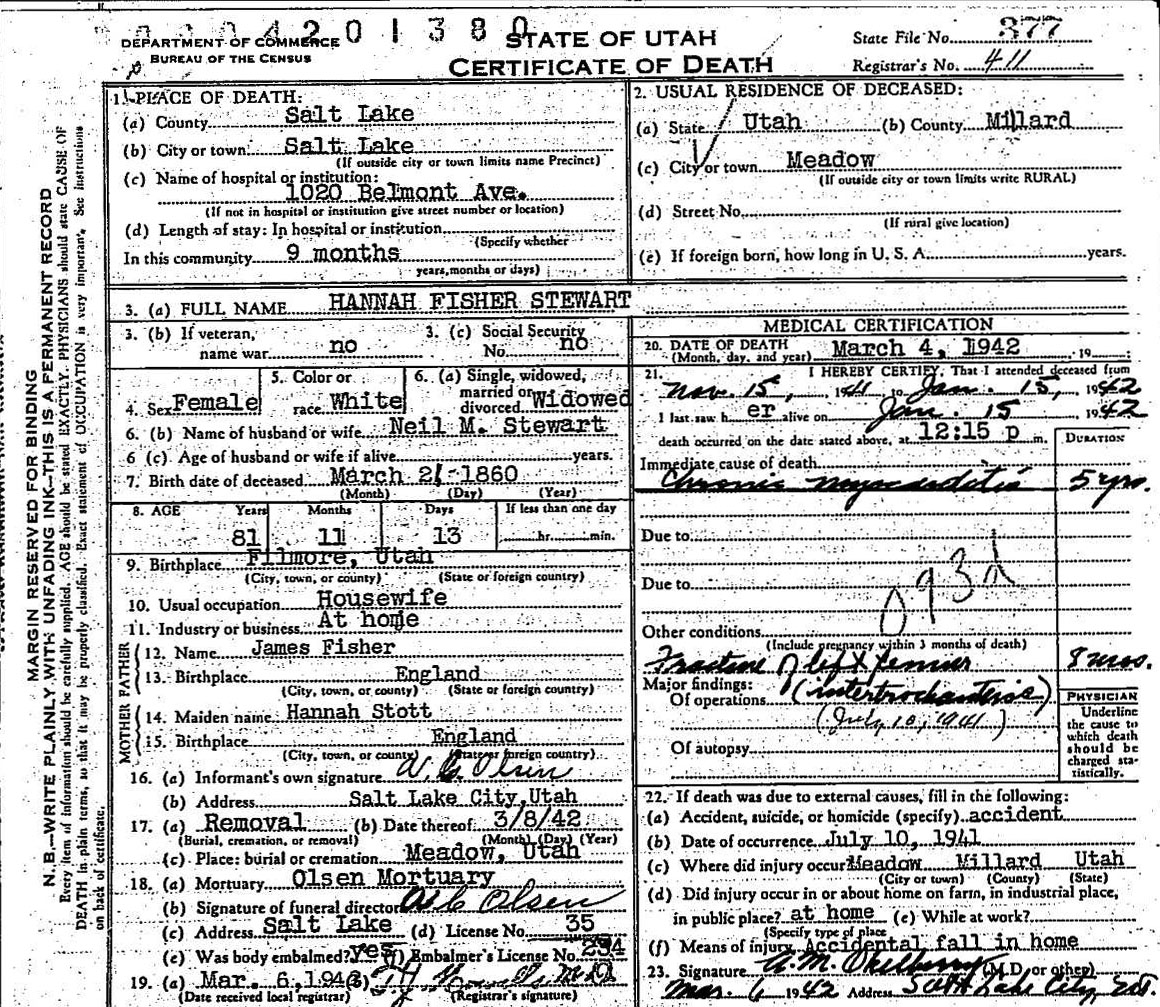 0004201380
DEPARTMENT OF COMMERCE
BUREAU OF THE CENSUS
STATE OF UTAH
CERTIFICATE OF DEATH
State File No. 377
Registrar's No. 411
MARGIN RESERVED FOR BINDING
N. B.—WRITE PLAINLY, WITH UNFADING INK—THIS IS A PERMANENT RECORD
Every item of information should be carefully supplied. AGE should be stated EXACTLY. PHYSICIANS should state CAUSE OF
DEATH in plain terms, so that it may be properly classified. Exact statement of OCCUPATION is very important. See instructions
on back of certificate.
1. PLACE OF DEATH:
(a) County Salt Lake
(b) City or town Salt Lake
(If outside city or town limits name Precinct)
(c) Name of hospital or institution:
1020 Belmont Ave.
(If not in hospital or institution give street number or location)
(d) Length of stay: In hospital or institution
(Specify whether
In this community 9 months
years, months or days)
2. USUAL RESIDENCE OF DECEASED:
(a) State Utah (b) County Millard
(c) City or town Meadow
(If outside city or town limits write RURAL)
(d) Street No.
(If rural give location)
(e) If foreign born, how long in U. S. A. years.
3. (a) FULL NAME HANNAH FISHER STEWART
3. (b) If veteran, name war no
3. (c) Social Security No. no
4. Sex Female
5. Color or race White
6. (a) Single, widowed, married or divorced Widowed
6. (b) Name of husband or wife Neil M. Stewart
6 (c) Age of husband or wife if alive years.
7. Birth date of deceased March 21-1860
(Month) (Day) (Year)
8. AGE Years Months Days If less than one day
81 11 13 hr. min.
9. Birthplace Filmore, Utah
(City, town, or county) (State or foreign country)
10. Usual occupation Housewife
11. Industry or business At home
FATHER
12. Name James Fisher
13. Birthplace England
(City, town, or county) (State or foreign country)
MOTHER
14. Maiden name Hannah Stott
15. Birthplace England
(City, town, or county) (State or foreign country)
16. (a) Informant's own signature Olsen
(b) Address Salt Lake City, Utah
17. (a) Removal (b) Date thereof 3/8/42
(Burial, cremation, or removal) (Month) (Day) (Year)
(c) Place: burial or cremation Meadow, Utah
18. (a) Mortuary Olsen Mortuary
(b) Signature of funeral director Olsen
(c) Address Salt Lake (d) License No. 35
(e) Was body embalmed? yes (f) Embalmer's License No.
19. (a) Mar. 6, 194
(Date received local registrar) (Registrar's signature)
MEDICAL CERTIFICATION
20. DATE OF DEATH
(Month, day, and year) March 4, 1942 19
21. I HEREBY CERTIFY, That I attended deceased from
Nov. 15, 1941 to Jan. 15, 1942
I last saw h er alive on Jan. 15 1942
death occurred on the date stated above, at 12:15 p m.
DURATION
Immediate cause of death
Chronic myocarditis 5 yrs.
Due to
Due to
093d
Other conditions
(Include pregnancy within 3 months of death)
Fracture of left femur 8 mos.
Major findings: (intertrochanteric)
Of operations
(July 10, 1941)
Of autopsy
PHYSICIAN
Underline
the cause to
which death
should be
charged sta-
tistically.
22. If death was due to external causes, fill in the following:
(a) Accident, suicide, or homicide (specify) accident
(b) Date of occurrence July 10, 1941
(c) Where did injury occur Meadow Millard Utah
(City or town) (County) (State)
(d) Did injury occur in or about home on farm, in industrial place,
in public place? at home (e) While at work?
(Specify type of place
(f) Means of injury Accidental fall in home
23. Signature A. M. (M.D. or other)
Mar. 6 1942 Address Salt Lake City, Ut.